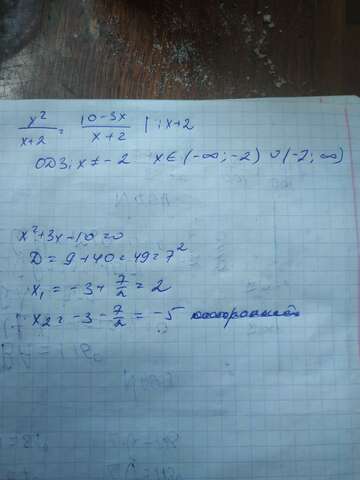 x²/x+2 = 10-3x/x+2 | : x+2
ОДЗ: x ≠ -2 x ∈ (-∞; -2) ∪ (-2; ∞)
x²+3x-10=0
D = 9+40=49=7²
x₁ = -3+7/2 = 2
x₂ = -3-7/2 = -5